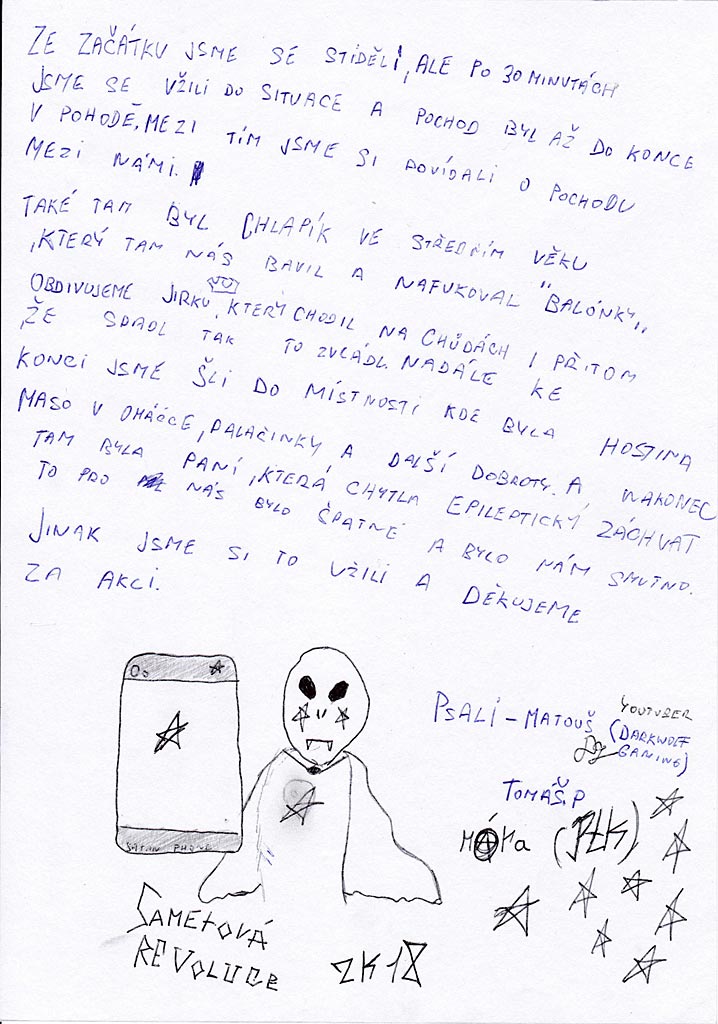 ZE ZAČÁTKU JSME SE STIDĚLI, ALE PO 30 MINUTÁCH
JSME SE VŽILI DO SITUACE A POCHOD BYL AŽ DO KONCE
V POHODĚ, MEZI TÍM JSME SI POVÍDALI O POCHODU
MEZI NÁMI.
TAKÉ TAM BYL CHLAPÍK VE STŘEDNÍM VĚKU
, KTERÝ TAM NÁS BAVIL A NAFUKOVAL "BALÓNKY„
OBDIVUJEME JIRKU, KTERÝ CHODIL NA CHŮDÁCH I PŘITOM
, ŽE SPADL TAK TO ZVLÁDL. NADÁLE KE
KONCI JSME ŠLI DO MÍSTNOSTI KDE BYLA HOSTINA
MASO V OMÁČCE, PALAČINKY A DALŠÍ DOBROTY. A NAKONEC
TAM BYLA PANÍ, KTERÁ CHYTLA EPILEPTICKÝ ZÁCHVAT
TO PRO NÁS BYLO ŠPATNÉ A BYLO NÁM SMUTNO.
JINAK JSME SI TO UŽILI A DĚKUJEME
ZA AKCI.
PSALI - MATOUŠ YOUTUBER (DARKWOLF
GAMING)
TOMÁŠ.P
MÁMA
SATAN PHONE
SAMETOVÁ
REVOLUCE ZK18